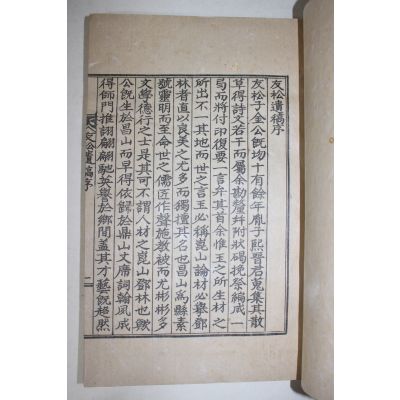 友松遺稿序
友松子金公旣歾十有餘年胤子熙晋君蒐集其散
草得詩文若干而屬余勘釐幷附狀碣挽祭編成一
局而將付印復要一言弁其首余惟玉之所生材之
所出不一其地而世之言玉必稱崑山論材必擧鄧
林者直以良美之尤多而獨擅其名也昌山爲縣素
號靈明而至命世之儒匠作聲施敎被而尤彬彬多
文學德行之士是其可不謂人材之崑山鄧林也歟
公旣生於昌山而早得依歸於鼎山丈席詞翰夙成
得師門推詡翩翩馳英譽於鄕閭盖其才藝旣超然
友松遺稿序
一